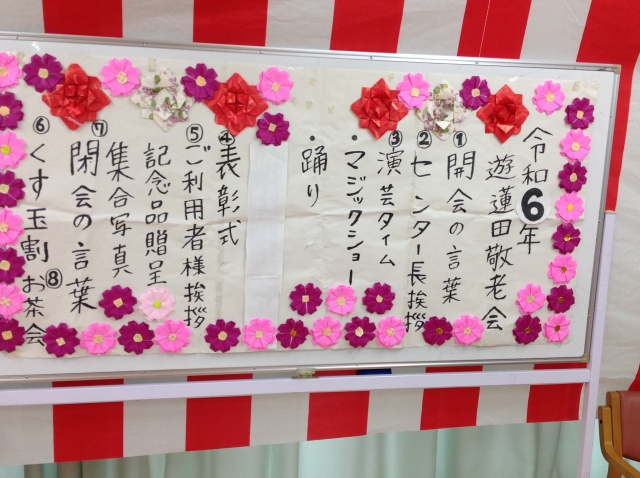 令和6年
遊蓮田敬老会
①開会の言葉
②センター長挨拶
③演芸タイム
・マジックショー
・踊り
④表彰式
⑤ご利用者様挨拶
記念品贈呈
集合写真
⑦閉会の言葉
⑥くす玉割
⑧お茶会